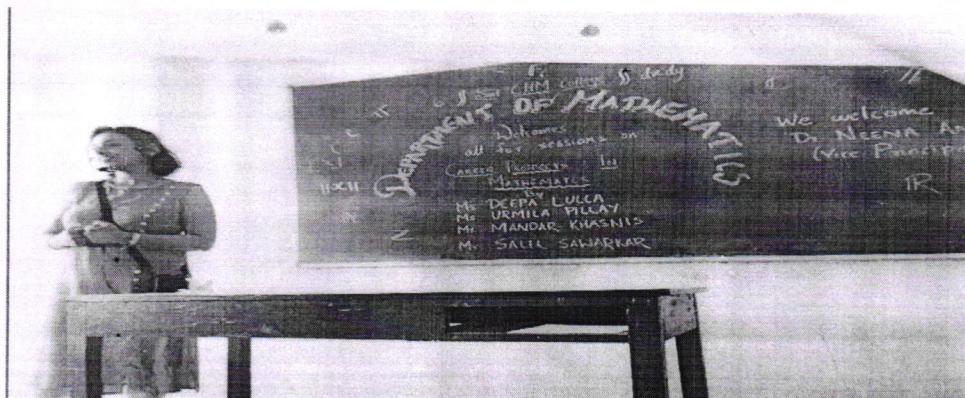 CHM College
∬ dxdy
DEPARTMENT OF MATHEMATICS
Welcomes
all for sessions on
Career Prospects In
MATHEMATICS
By
Ms DEEPA LULLA
Ms URMILA PILLAY
Mr MANDAR KHASNIS
Mr SALIL SAWARKAR
π
||x||
We welcome
Dr NEENA
(Vice
IR